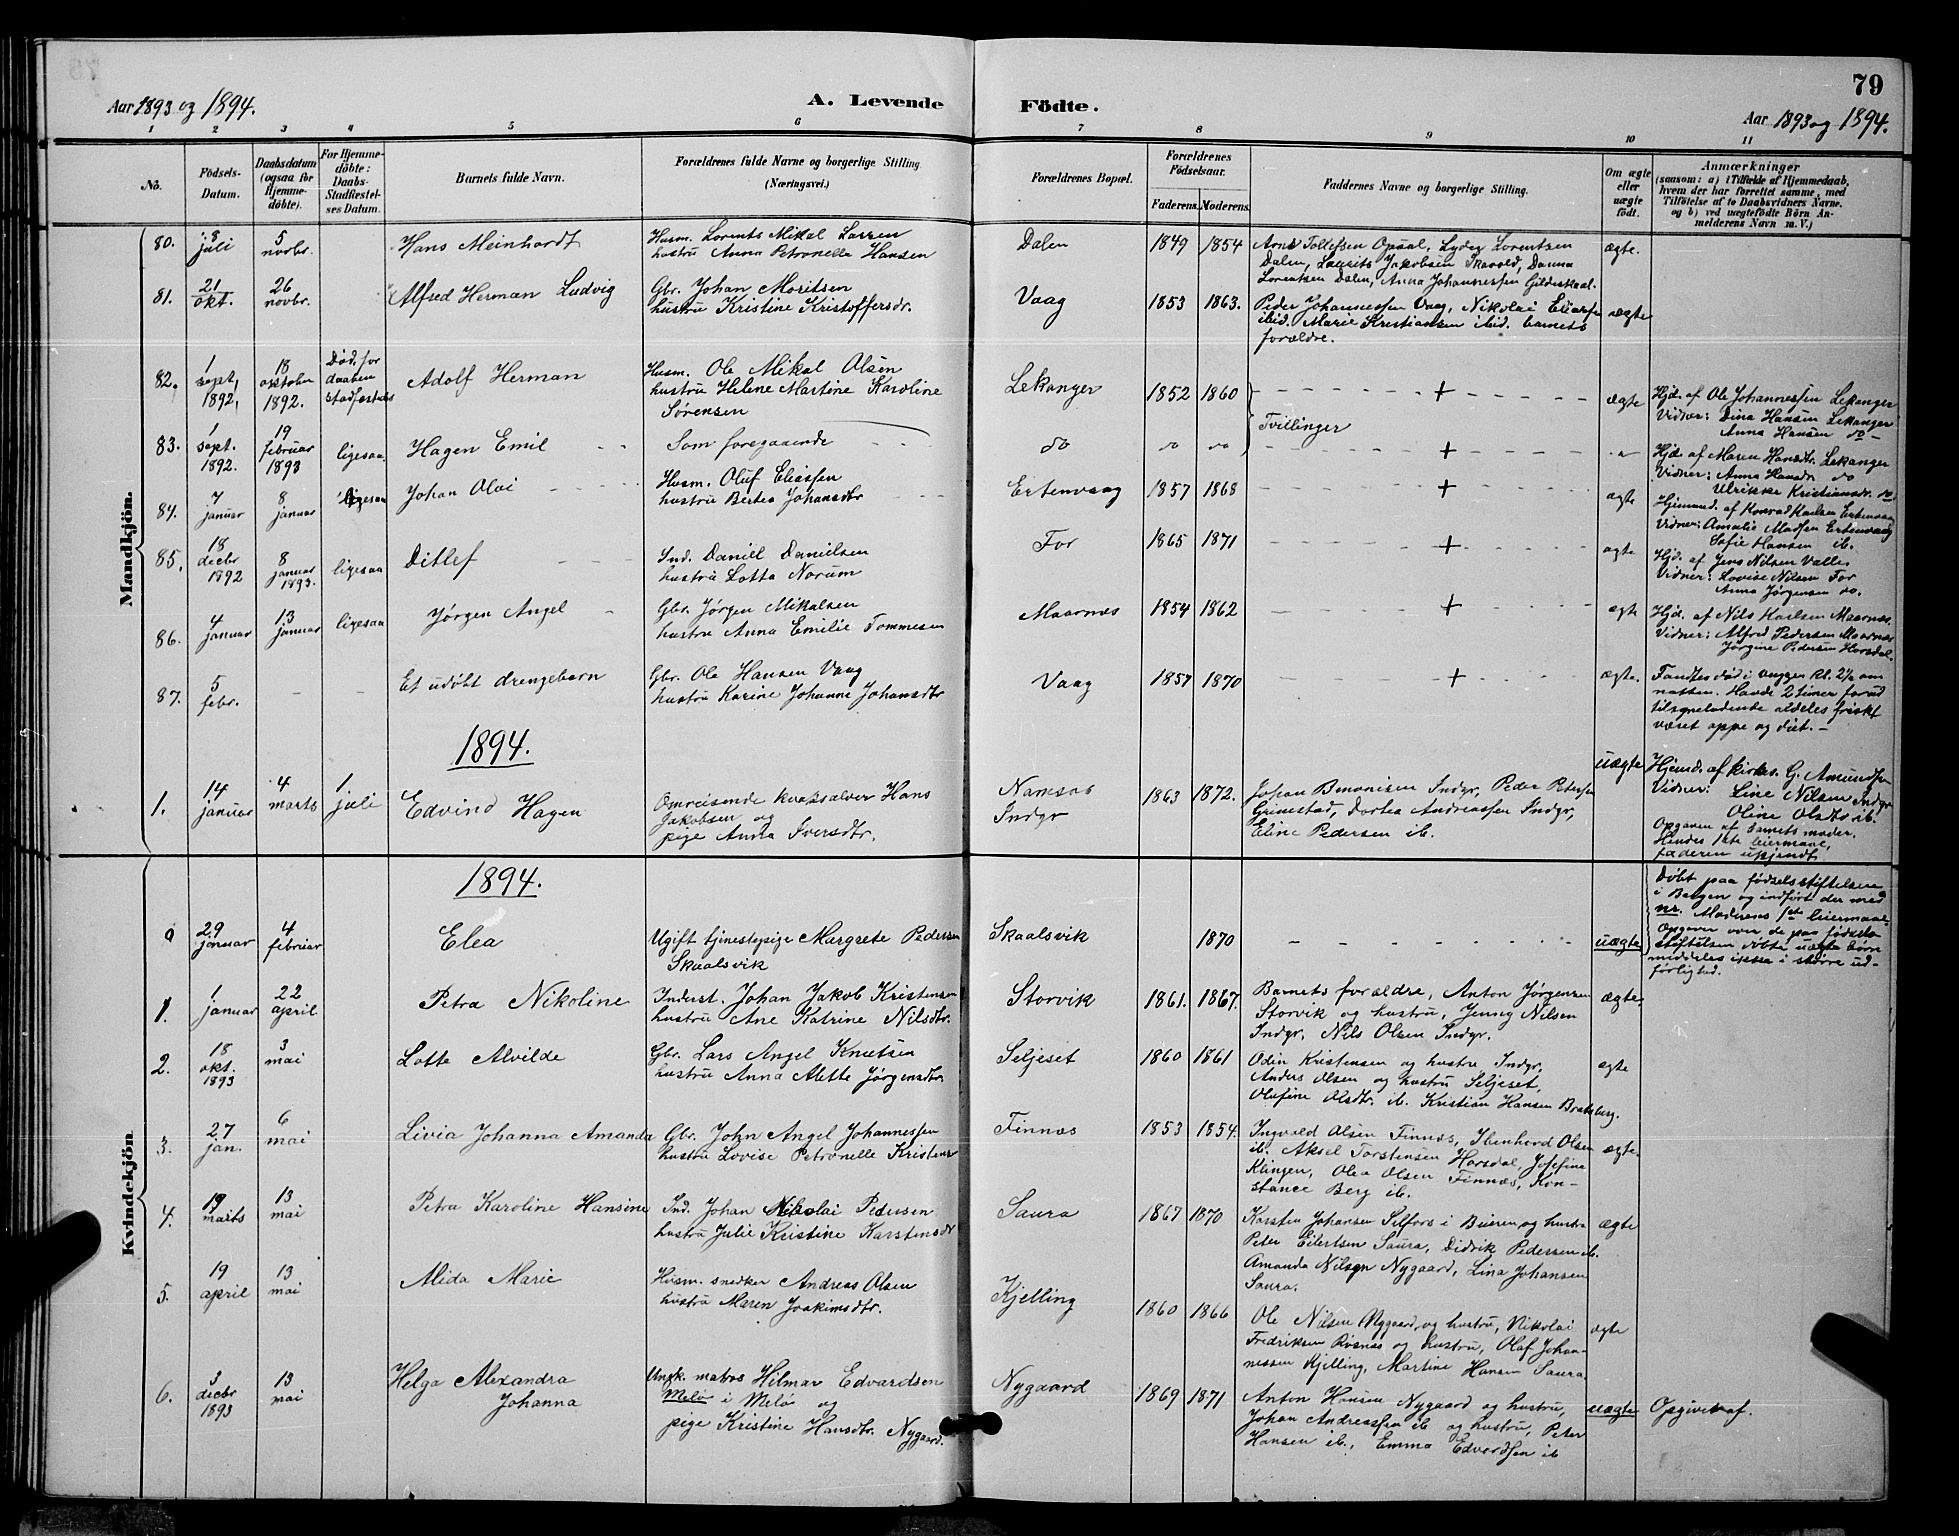 79
Aar 1893 og 1894.
A. Levende Födte.
Aar 1893 og 1894.
1 2 3 4 5 6 7 8 9 10 11
No.
Födsels-
Datum.
Daabsdatum
(ogsaa for
Hjemme-
döbte).
For Hjemme-
döbte:
Daabs-
Stadfæstel-
ses Datum.
Barnets fulde Navn.
Forældrenes fulde Navne og borgerlige Stilling.
(Næringsvei.)
Forældrenes Bopæl.
Forældrenes
Födselsaar.
Faderens. Moderens.
Faddernes Navne og borgerlige Stilling.
Om ægte
eller
uægte
födt.
Anmærkninger
(saasom: a) i Tilfælde af Hjemmedaab,
hvem der har forrettet samme, med
Tilföielse af to Daabsvidners Navne.
og b) ved uægtefödte Börn An-
melderens Navn m. V.)
Mandkjön.
80.
8
juli
5
novbr.
Hans Meinhardt
Husm. Lorents Mikal Larsen
hustru Anna Petronelle Hansen
Dalen
1849 1854
Arnt Tollefsen Opsal, Lyder Lorentsen
Dalen, Laurits Jakobsen Skavold, Danna
Lorentsen Dalen, Anna Johannessen Gildeskaal.
ægte.
81.
21
okt.
26
novbr.
Alfred Herman Ludvig
Gbr. Johan Moritsen
hustru Kristine Kristoffersdr.
Vaag
1853 1863.
Peder Johannessen Vaag, Nikolai Eliassen
ibid. Marie Kristiansen ibid. barnets
forældre.
ægte
82.
1
sept,
1892,
18
oktober
1892.
Død før
daaben
stadfæstedes
Adolf Herman
Husm. Ole Mikal Olsen
hustru Helene Martine Karoline
Sørensen
Lekanger
1852 1860
+
Tvillinger
ægte
Hjd. af Ole Johannessen Lekanger
Vidner: Dina Hansen Lekanger
Anna Hansen do
83.
1
sept.
1892.
19
februar
1893
ligesaa
Hagen Emil
Som foregaaende
do do do
+
Hjd. af Maren Hansdtr. Lekanger
Vidner: Anna Hansdr. do
Ulrikke Kristiansdr. do
84.
7
januar
8
januar
ligesaa
Johan Olai
Husm. Oluf Eliassen
hustru Berta Johansdtr
Ertenvaag
1857 1868
+
ægte
Hjemmed. af Konrad Karlsen Ertenvaag
Vidner: Amalie Madsen Ertenvaag
Sofie Hansen ib.
85.
18
decbr
1892
8
januar
1893.
ligesaa
Ditlef
Ind. Daniel Danielsen
hustru Lotta Norum
For
1865 1871
+
ægte
Hjd. af Jens Nilsen Valle
Vidner: Lovise Nilsen For
Anna Jørgensen do.
86.
4
januar
13
januar
ligesaa
Jørgen Angel
Gbr. Jørgen Mikalsen
hustru Anna Emilie Tommesen
Maarnæs
1854 1862
+
ægte
Hjd. af Nils Karlsen Maarnæs.
Vidner: Alfred Pedersen Maarnæs
Jørgine Pedersen Horsdal.
87.
5
febr.
Et udøbt drengebarn
Gbr. Ole Hansen Vaag
hustru Karine Johanne Johansdtr
Vaag
1857 1870
+
ægte.
Fandtes død i vuggen kl. 2½ om
natten. Havde 2 timer forud
tilsyneladende aldeles friskt
været oppe og diet.
1894.
1.
14
januar
4
marts
1
juli
Edvind Hagen
Omreisende kvaksalver Hans
Jakobsen og
pige Anna Iversdtr.
Namsos
Indyr
1863 1872.
Johan Benonisen Indyr, Peder Petersen
Grimstad, Dortea Andreassen Indyr,
Eline Pedersen ib.
uægte
Hjemd. af kirkes. G. Amundsen
Vidner: Line Nilsen Indyr
Oline Olsdtr ib.
Opgaven af barnets moder.
Hendes 1ste leiermaal,
faderen ukjendt
Kvindekjön
1894.
29
januar
4
februar
Elea
Ugift tjenestepige Margrete Pedersen
Skaalsvik
Skaalsvik
1870
uægte
Døbt paa fødselsstiftelsen
i Bergen og indført der med
nr. Moderens 1ste leiermaal
Opgaver over de paa fødsels-
stiftelsen døbte uægte børn
meddeles ikke i større ud-
førlighed.
1.
1
januar
22
april
Petra Nikoline
Inderst. Johan Jakob Kristensen
hustru Ane Katrine Nilsdtr.
Storvik
1861. 1867.
Barnets forældre, Anton Jørgensen
Storvik og hustru, Jenny Nilsen
Indyr, Nils Olsen Indyr.
ægte
2.
18
okt.
1893
3
mai
Lotte Alvilde
Gbr. Lars Angel Knutsen
hustru Anna Alette Jørgensdtr.
Seljeset
1860 1861
Odin Kristensen og hustru Indyr,
Anders Olsen og hustru Seljeset,
Olufine Olsdtr. ib. Kristian Hansen Bratsberg.
ægte
3.
27
jan.
6
mai
Livia Johanna Amanda
Gbr. John Angel Johannessen
hustru Lovise Petronelle Kristens
Finnæs
1853 1854.
Ingvald Olsen Finnæs, Ibenhard Olsen
ib. Aksel Torstensen Horsdal, Josefine
Klingen, Olea Olsen Finnæs, Kon-
stance Berg ib.
ægte
4.
19
marts
13
mai
Petra Karoline Hansine
Ind. Johan Nikolai Pedersen
hustru Julie Kristine Karstensdr
Saura
1867 1870
Karsten Johansen Selfors i Beieren og hustru
Peter Eilertsen Saura, Didrik Pedersen ib.
Amanda Nilsen Nygaard, Lina Johansen
Saura.
ægte
5.
19
april
13
mai
Alida Marie
Husm. snedker Andreas Olsen
hustru Maren Joakimsdtr.
Kjelling
1860 1866
Ole Nilsen Nygaard og hustru, Nikolai
Fredriksen Røsnæs og hustru, Olaf Johan-
nessen Kjelling, Martine Hansen Saura
ægte
6.
3
decbr
1893
13
mai
Helga Alexandra
Johanna
Ungk. matros Hilmar Edvardsen
Melø i Melø og
pige Kristine Hansdtr. Nygaard.
Nygaard
1869 1871
Anton Hansen Nygaard og hustru,
Johan Andreassen ib og hustru, Peter
Hansen ib., Emma Edvardsen ib
uægte
Opgivet af.